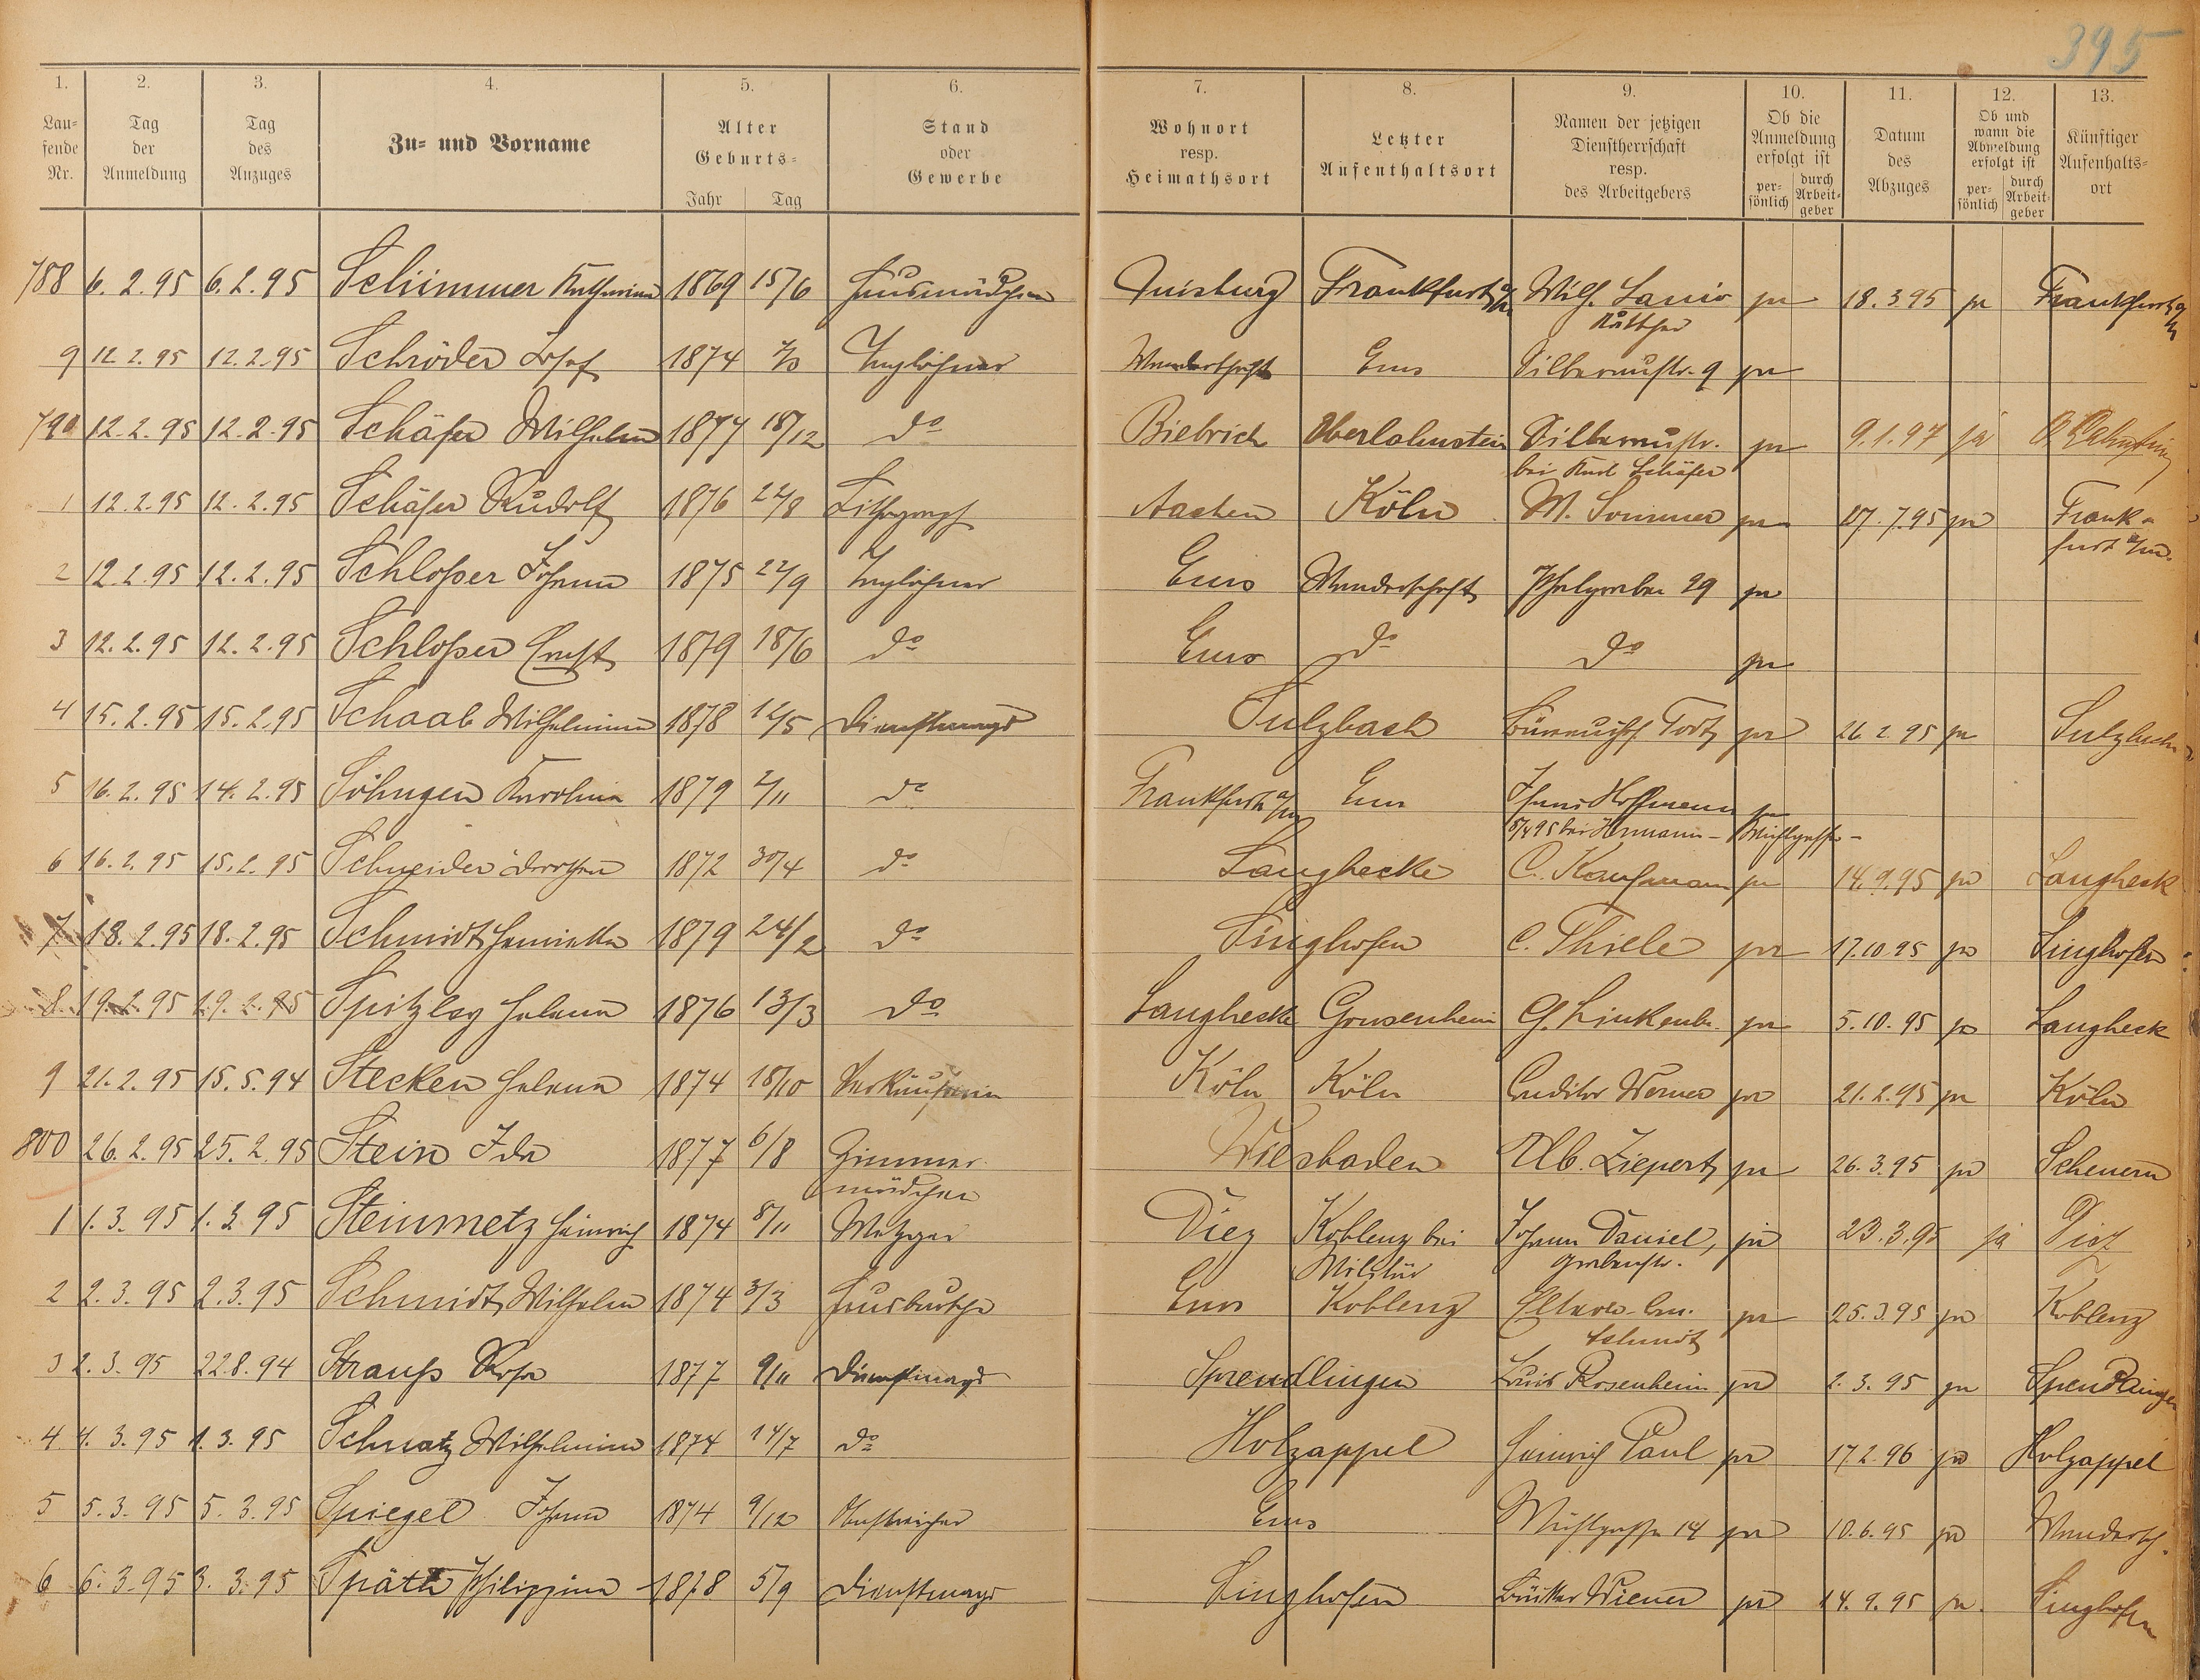 395
1. 2. 3. 4. 5. 6. 7. 8. 9. 10. 11. 12. 13.
Laufende Nr. | Tag der Anmeldung | Tag des Anzuges | Zu- und Vorname | Alter Geburts- Jahr Tag | Stand oder Gewerbe | Wohnort resp. Heimathsort | Letzter Aufenthaltsort | Namen der jetzigen Dienstherrschaft resp. des Arbeitgebers | Ob die Anmeldung erfolgt ist persönlich durch Arbeitgeber | Datum des Abzuges | Ob und wann die Abmeldung erfolgt ist persönlich durch Arbeitgeber | Künftiger Aufenhalts-ort
788 6.2.95 6.2.95 Schimmer Katharina 1869 15/6 Hausmädchen Duisburg Frankfurt a/M Wilh. ja 18.3.95 ja Frankfurt a/M
9 12.2.95 12.2.95 Schröder Josef 1874 Taglöhner Wanderschaft Ems Silberaustr. 9 ja
790 12.2.95 12.2.95 Schäfer Wilhelm 1877 18/12 do Biebrich Oberlahnstein Silberaustr. ja 9.1.97 ja
bei Karl Schäfer
1 12.2.95 12.2.95 Schäfer Rudolf 1876 22/8 Lithograph Aachen Köln M. Sommer ja 27.7.95 ja Frank-
furt a/M.
2 12.2.95 12.2.95 Schloßer Johann 1875 22/9 Taglöhner Ems Wanderschaft Pfahlgraben 29 ja
3 12.2.95 12.2.95 Schloßer Ernst 1879 18/6 do Ems do do ja
4 15.2.95 15.2.95 Schaab Wilhelmine 1878 12/5 Dienstmagd Sulzbach ja 26.2.95 ja Sulzbach
5 16.2.95 14.2.95 Söhngen Karolina 1879 2/11 do Frankfurt a/M Ems Hoffmann ja
8/4 95 bei Hermann - Mühlgasse -
6 16.2.95 15.2.95 Schneider Dorothea 1872 30/4 do Langhecke C. Kaufmann ja 14.9.95 ja Langheck
7 18.2.95 18.2.95 Schmidt Henriette 1879 24/2 do Singhofen C. Thiele ja 17.10.95 ja Singhofen
8 19.2.95 19.2.95 Spitzley Helena 1876 13/3 do Langhecke Gonsenheim G. Linkenb. ja 5.10.95 ja Langheck
9 21.2.95 15.5.94 Stecken Helena 1874 18/10 Verkäuferin Köln Köln Conditor Werner ja 21.2.95 ja Köln
800 26.2.95 25.2.95 Stein Ida 1877 6/8 Zimmer- Wiesbaden Alb. Ziepert ja 26.3.95 ja Scheuern
mädchen
1 1.3.95 1.3.95 Steinmetz Heinrich 1874 8/11 Metzger Diez Koblenz bei Johann Daniel, ja 23.3.95 ja Diez
Militär Grabenstr.
2 2.3.95 2.3.95 Schmidt Wilhelm 1874 3/3 Hausbursche Ems Koblenz ja 25.3.95 ja Koblenz
Schmidt
3 2.3.95 22.8.94 Strauß Rosa 1877 9/11 Dienstmagd Sprendlingen Louis Rosenheim ja 2.3.95 ja Sprendlingen
4 4.3.95 1.3.95 Schnatz Wilhelmine 1874 14/7 do Holzappel Heinrich Paul ja 17.2.96 ja Holzappel
5 5.3.95 5.3.95 Spiegel Johann 1874 9/12 Anstreicher Ems Mühlgasse 14 ja 10.6.95 ja Wandersch.
6 6.3.95 3.3.95 Späth Philippine 1878 5/9 Dienstmagd Singhofen Bäcker Wiener ja 14.9.95 ja Singhofen